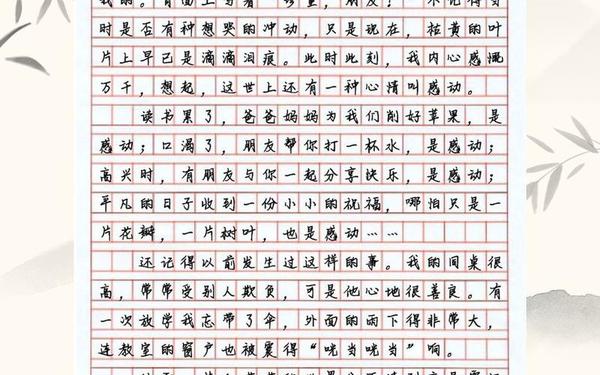 时是否有种想哭的冲动，只是现在，枯黄的叶
片上早已是滴滴泪痕。此时此刻，我内心感慨
万千，想起，这世上还有一种心情叫感动。
读书累了，爸爸妈妈为我们削好苹果，是
感动；口渴了，朋友帮你打一杯水，是感动；
高兴时，有朋友与你一起分享快乐，是感动；
平凡的日子收到一份小小的祝福，哪怕只是一
片花瓣，一片树叶，也是感动……
还记得以前发生过这样的事。我的同桌很
高，常常受别人欺负，可是他心地很善良。有
一次放学我忘带了伞，外面的雨下得非常大，
连教室的窗户也被震得“咣当咣当”响。